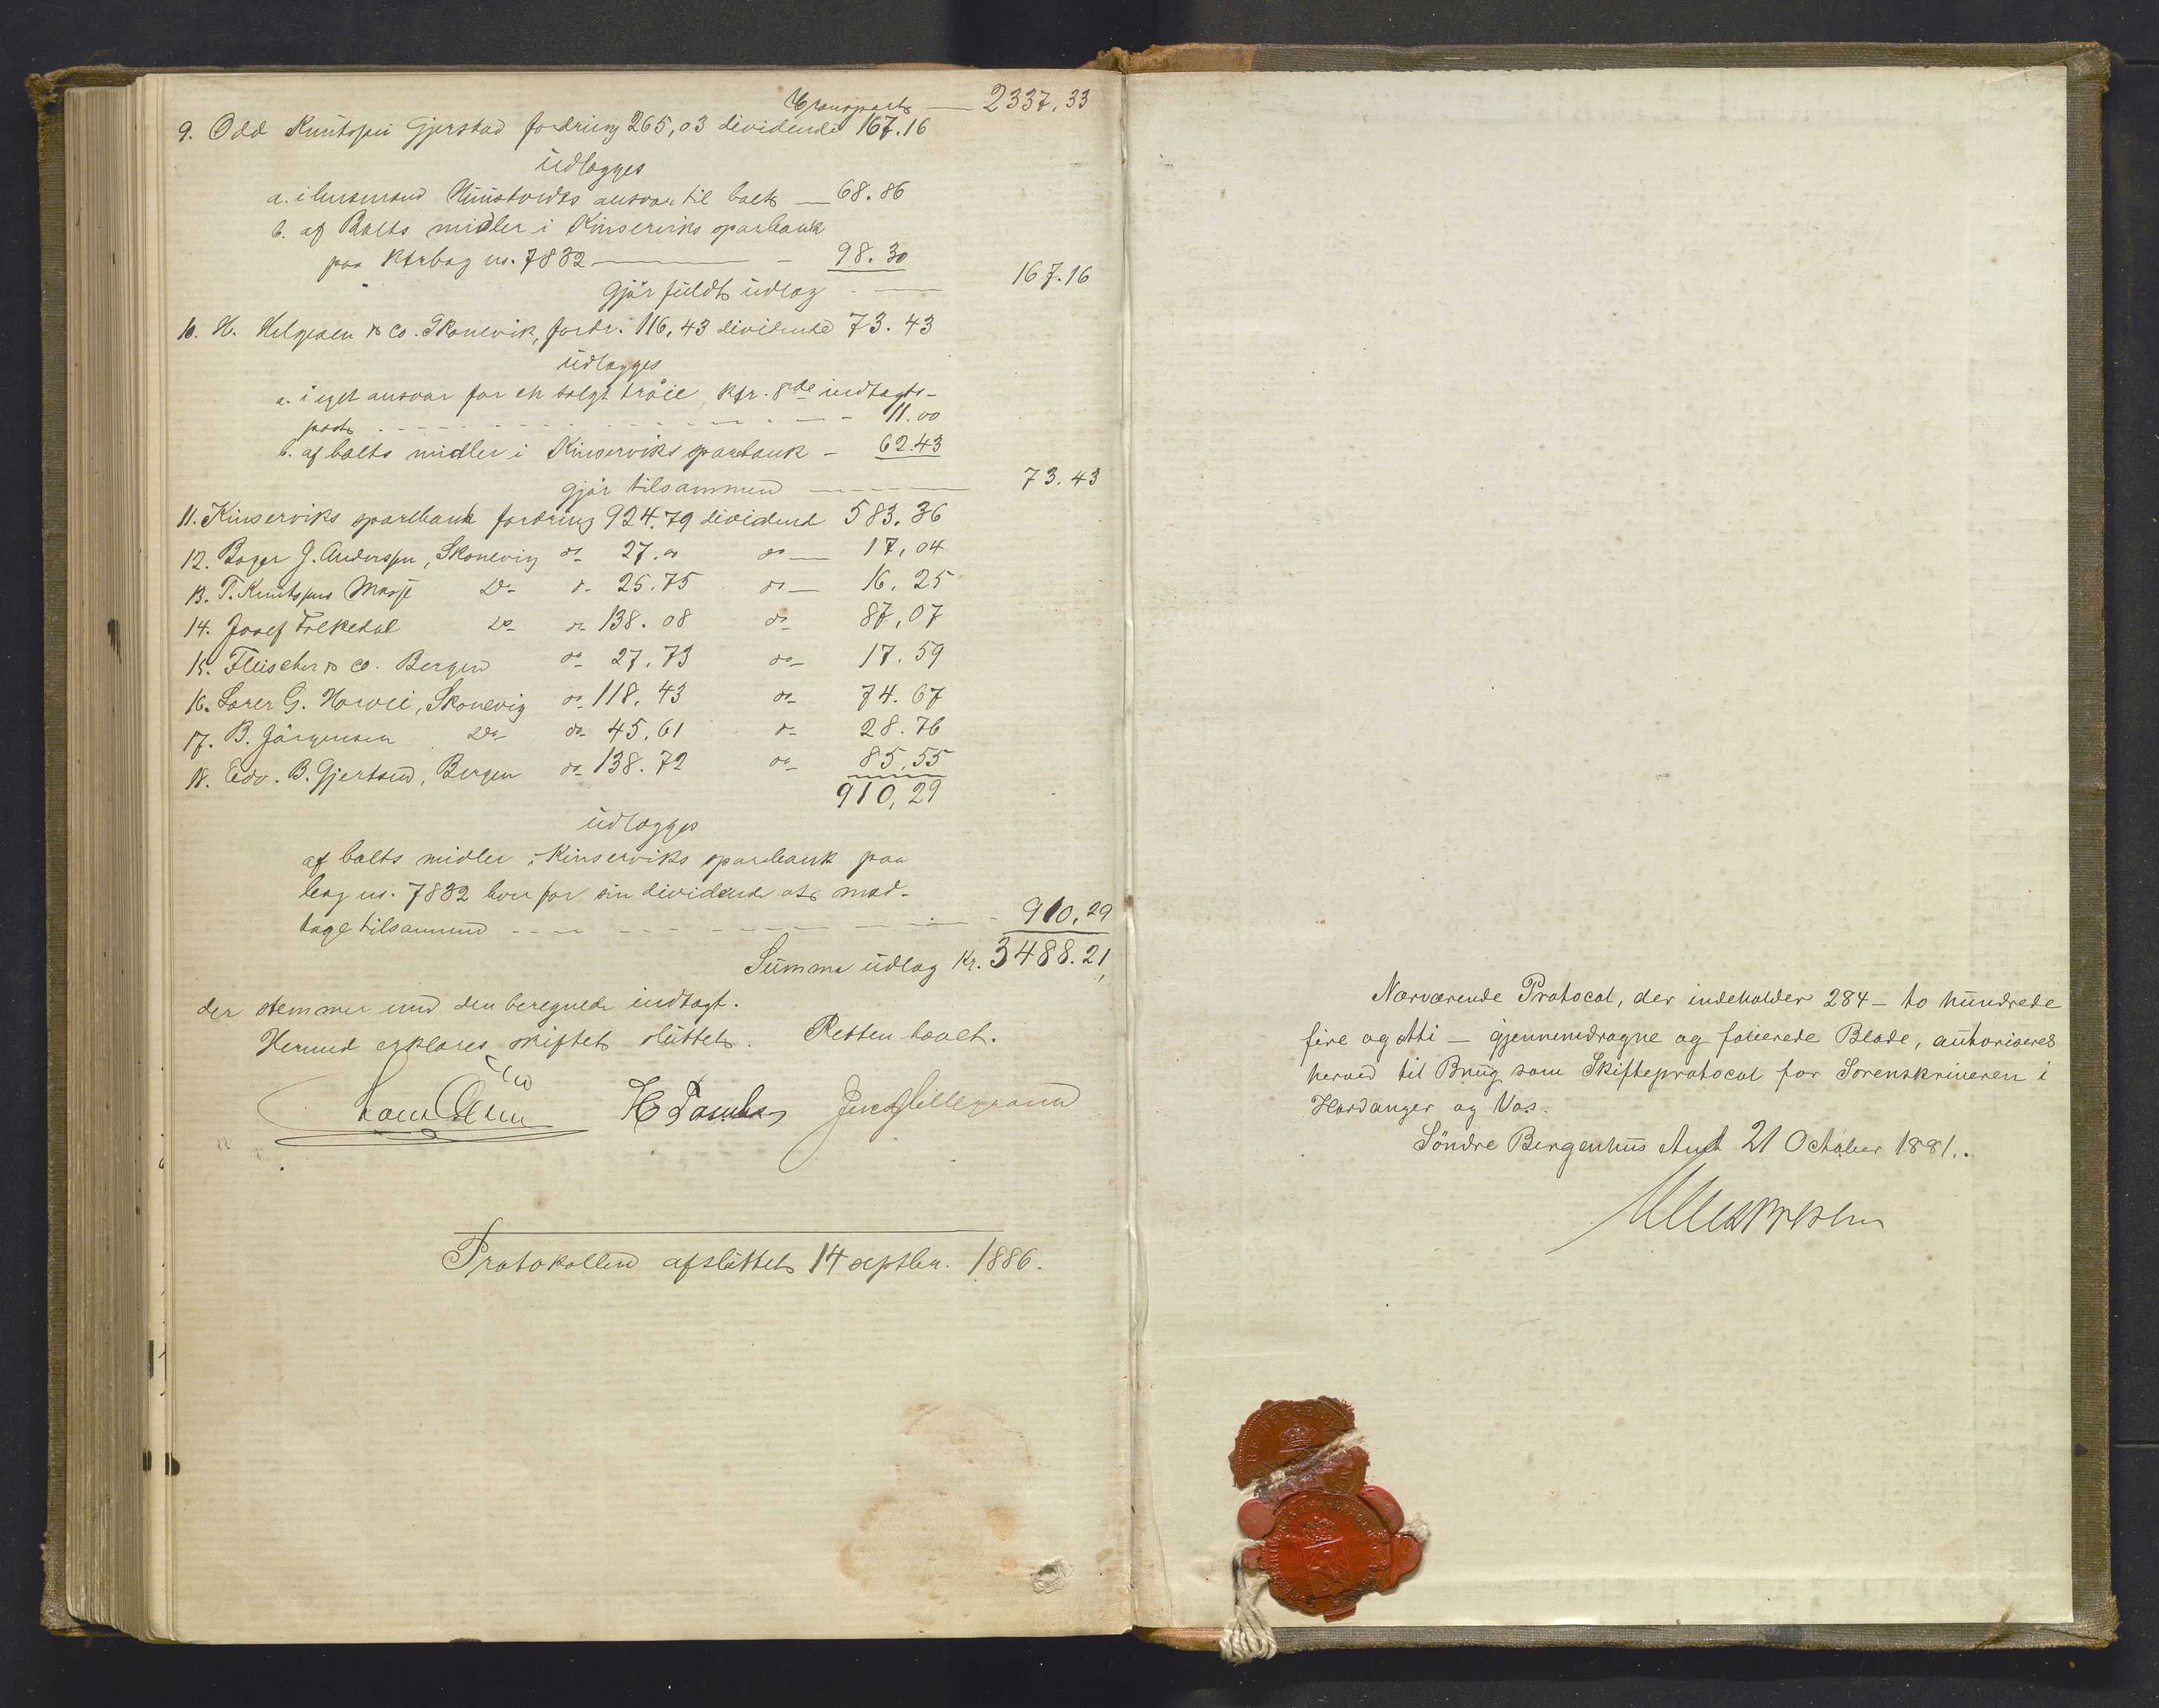 Transport — 2337,33
9. Odd Knutsen Gjerstad fordring 265,03 dividende 167.16
udlægges
a. i lensmand ansvar til boet — 68.86
b. af Boets midler i Kinserviks sparbank
paa Ktrbog no. 7832 — 98.30
gjør fuldt udlæg — 167.16
10. H. Helgesen & Co. Skonevik, fordr. 116,43 dividende 73.43
udlægges
a. i eget ansvar for en solgt trøie, kfr. 8de indtægts-
post - - - 11.00
b. af boets midler i Kinserviks sparbank - 62.43
gjør tilsammen — 73.43
11. Kinserviks sparebank fordring 924.79 dividende 583.36
12. Bager J. Anderssen, Skonevig do 27.00 do — 17,04
13. T. Knutssens Do- do- 25.75 do — 16.25
14. Josef Folkedal Do- do- 138.08 do- 87,07
15. Fleischer & Co. Bergen do- 27.73 do- 17.59
16. G. Skonevig do- 118.43 do- 74.67
17. B. Jörgensen Do- do- 45.61 do- 28.76
18. Edv. B. Gjertsen, Bergen do- 138.72 do- 85,55
910,29
udlægges
af boets midler i Kinserviks sparebank paa
bog no. 7832 hver for sin dividende at mod-
tage tilsammen - - - 910,29
Summa udlæg Kr. 3488.21,
der stemmer med den beregnede indtægt.
Hermed erklæres skiftet sluttet. Retten hævet.
Protokollen afsluttet 14 septbr. 1886.
Nærværende Protocol, der indeholder 284 - to hundrede
fire og otti - gjennemdragne og folierede Blade, autoriseres
herved til Brug som Skifteprotocol for Sorenskriveren i
Hardanger og Vos.
Söndre Bergenhus Amt 21 October 1881.